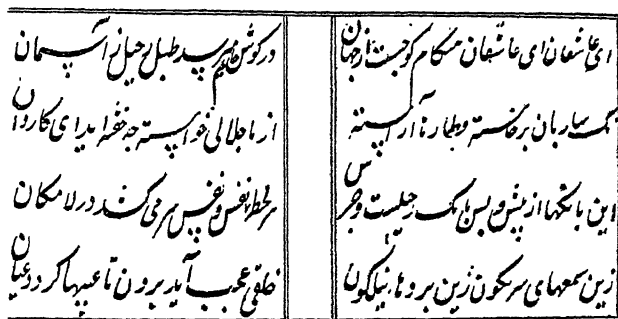 ای عاشقان ای عاشقان هنگام کوچست از جهان در گوش جانم میرسد طبل رحیل از آسمان
نک ساربان برخاسته قطارها آراسته از ما حلالی خواسته چه خفته‌اید ای کاروان
این بانگها از پیش و پس بانگ رحیلست و جرس هر لحظه نفس و نفس سر می کشد در لامکان
زین شمعهای سرنگون زین پردهای نیلگون خلقی عجب آید برون تا غیبها گردد عیان